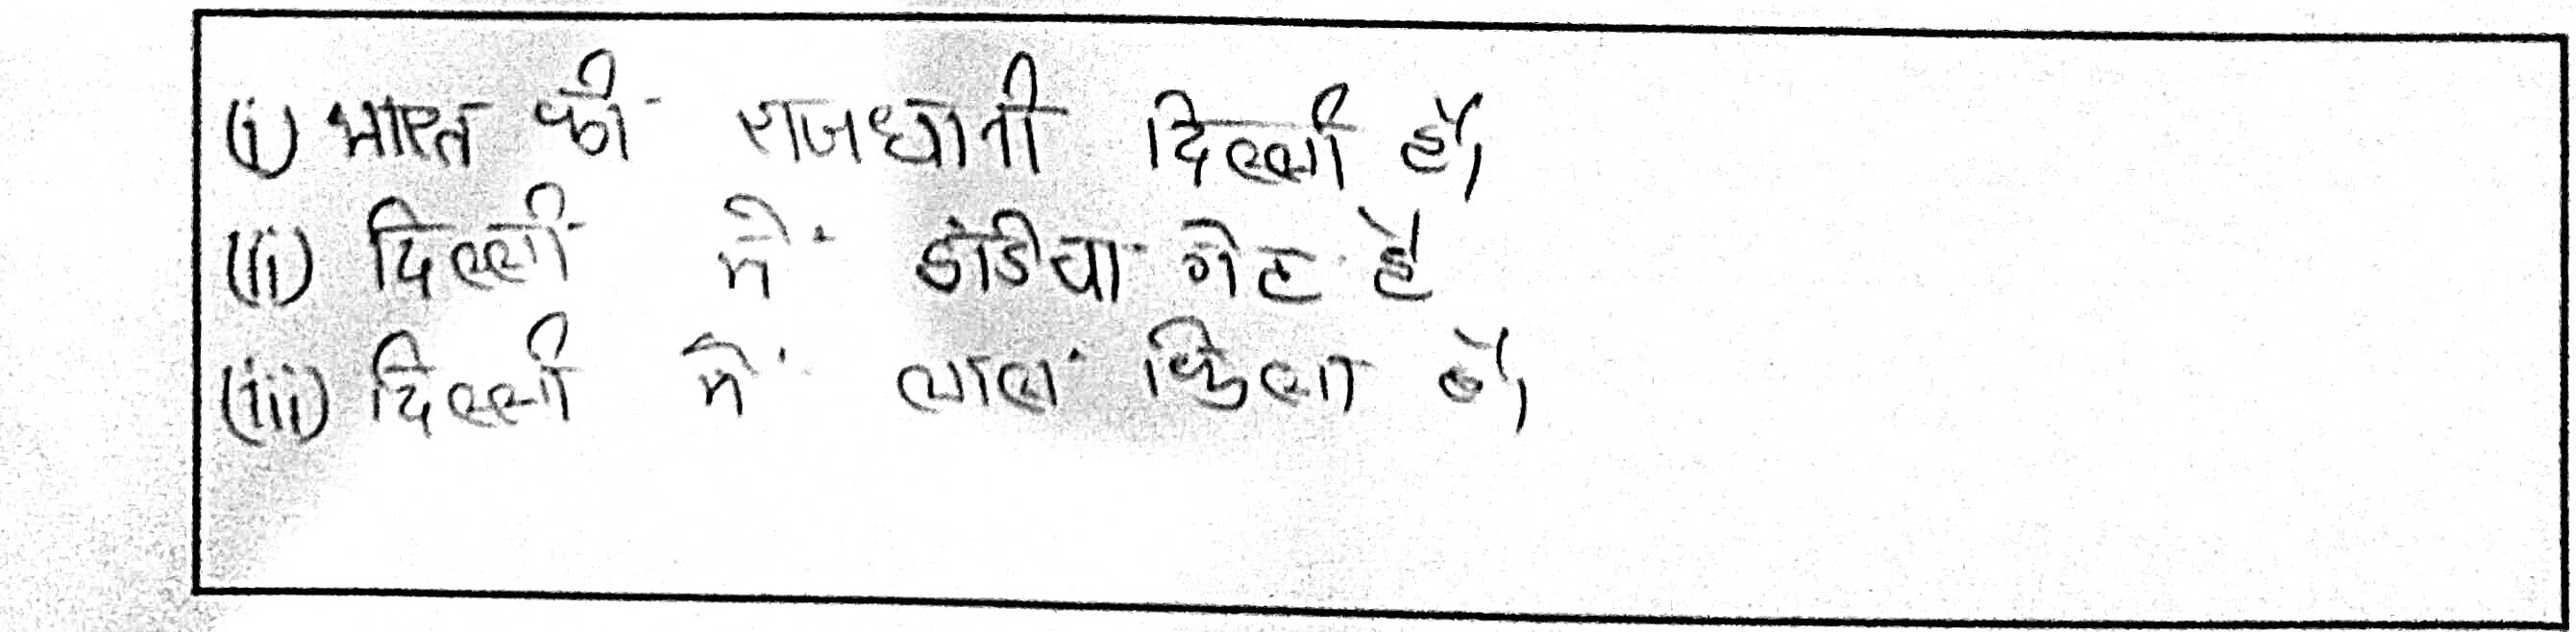 (i) भारत की राजधानी दिल्ली है।
(ii) दिल्ली में इंडीया गेट है
(iii) दिल्ली में लाल किला है।